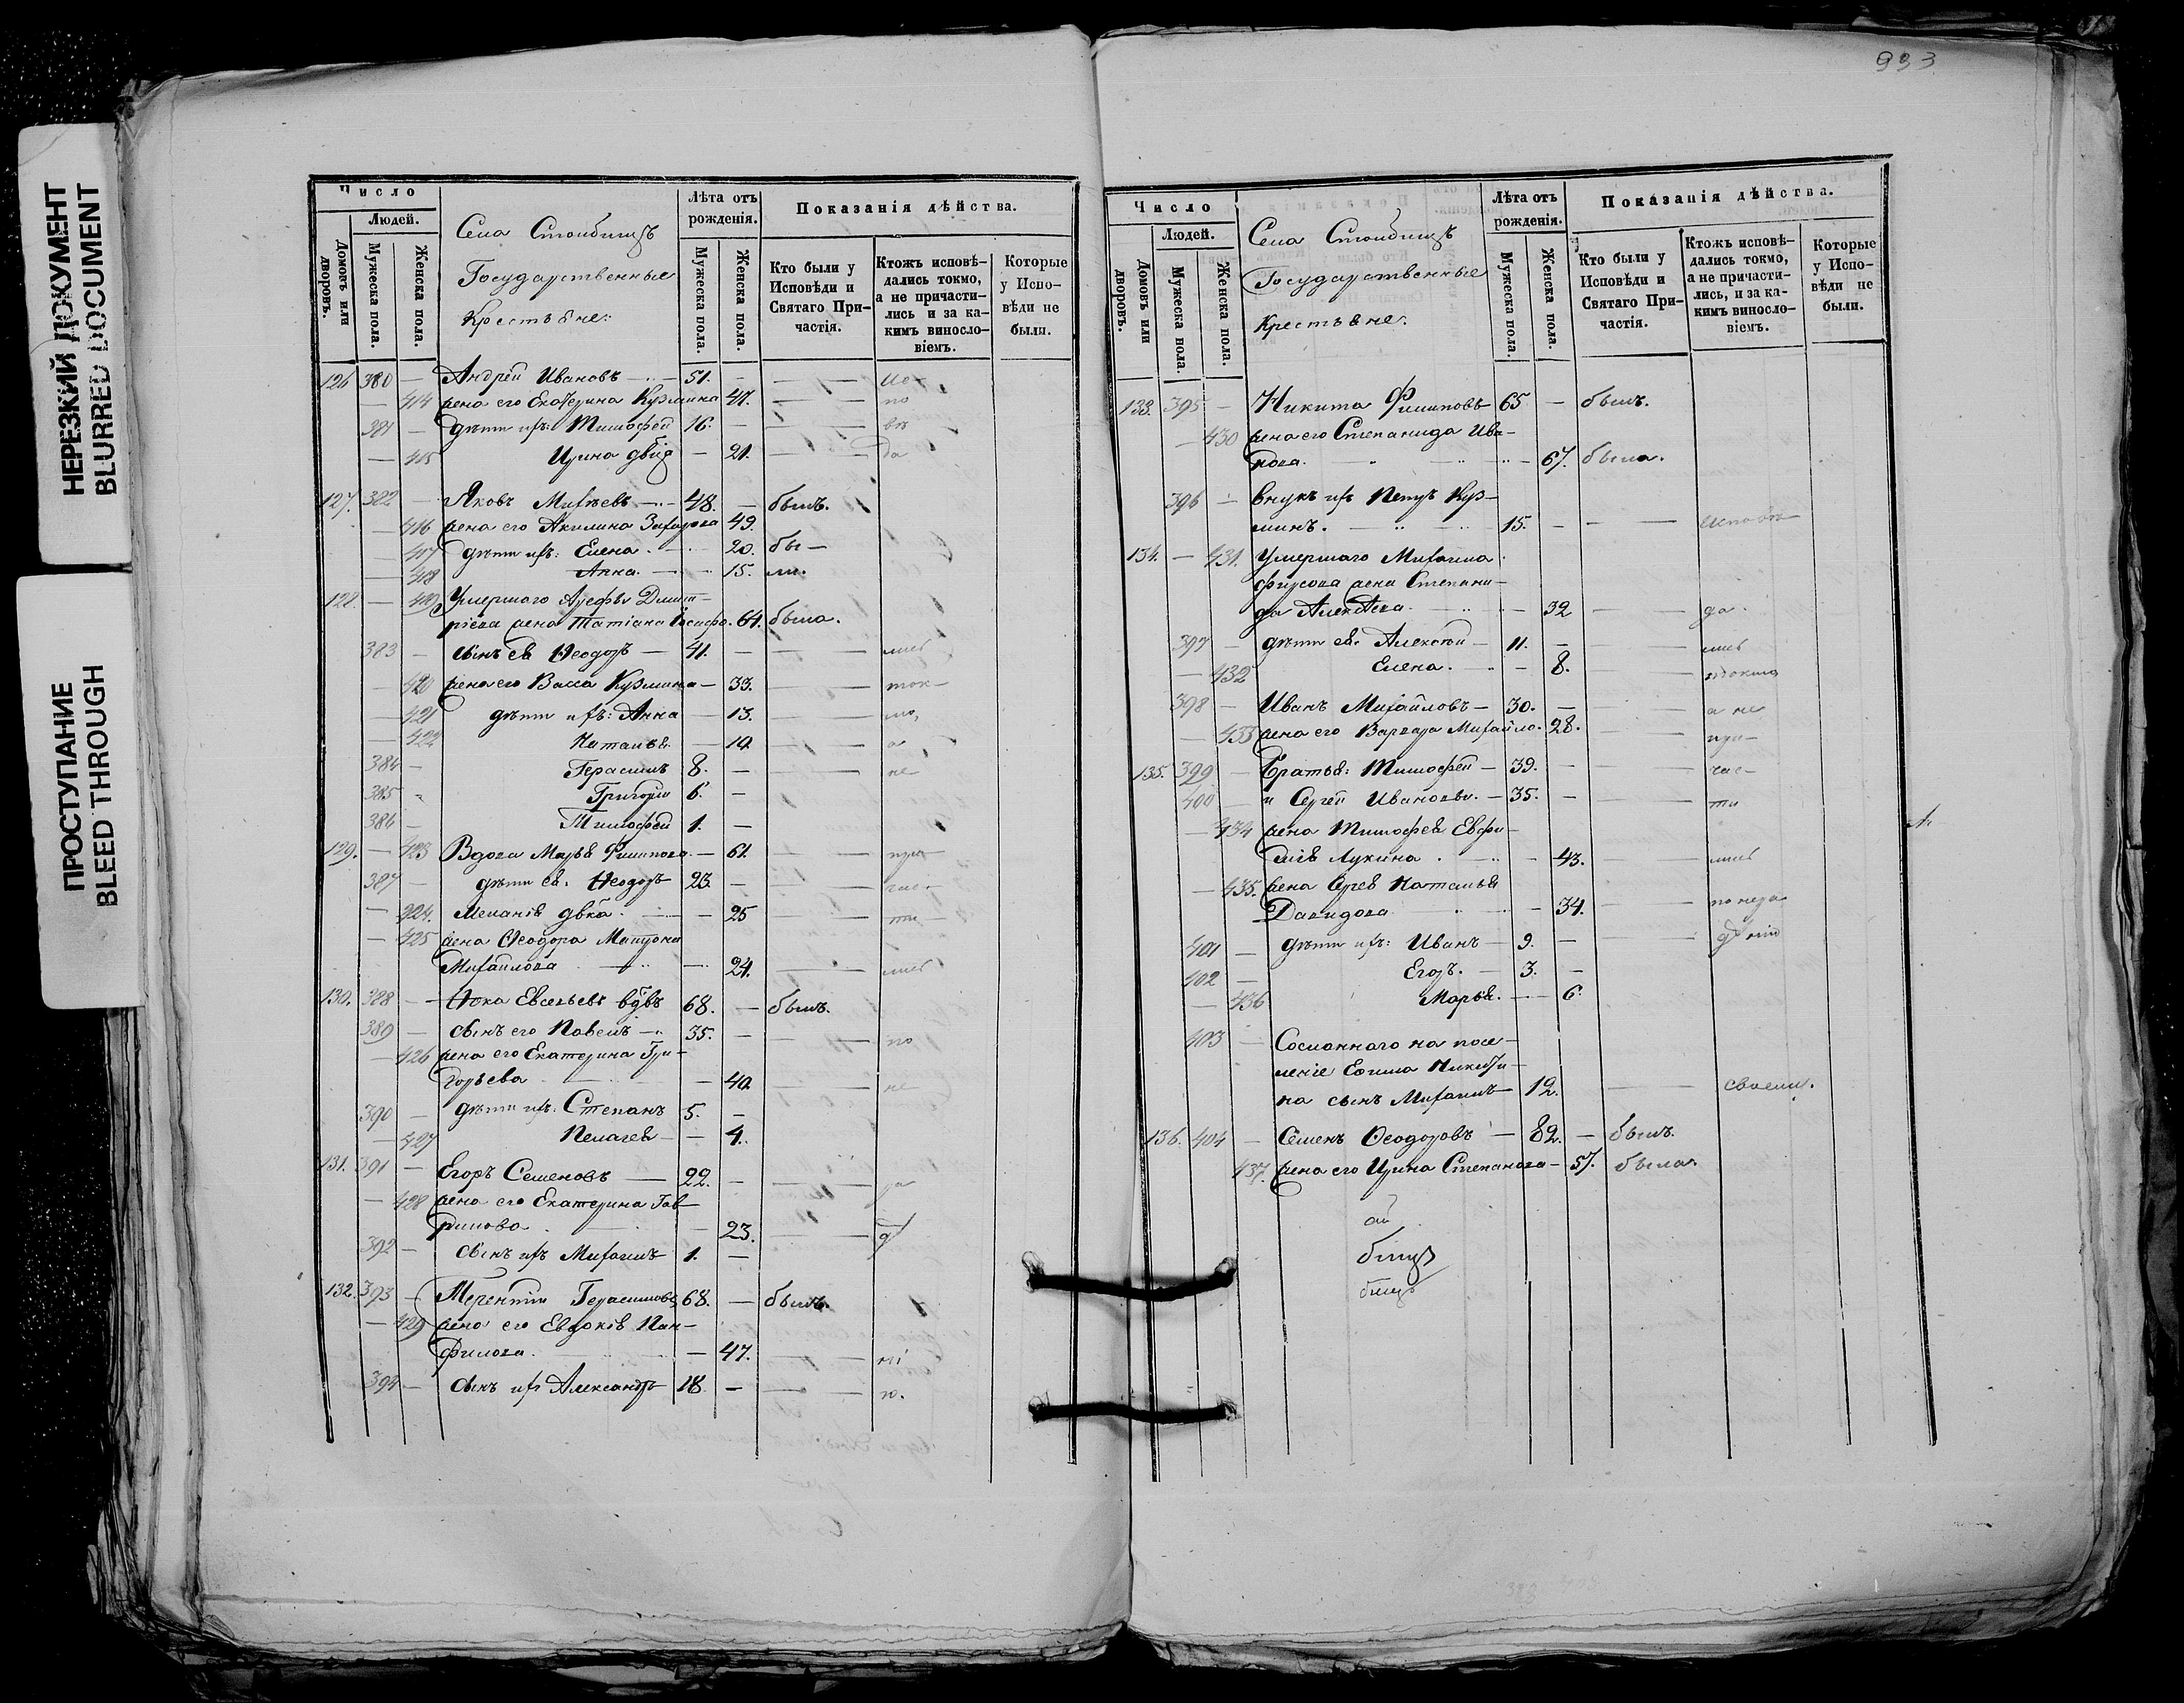 НЕРЕЗКИЙ ДОКУМЕНТ
BLURRED DOCUMENT
ПРОСТУПАНИЕ
BLEED THROUGH
Число
Людей.
Домовъ или дворовъ.
Мужеска пола.
Женска пола.
Села Столбищъ
Государственные
Крестьяне:
Лѣта отъ рожденія.
Мужеска пола.
Женска пола.
Показанія дѣйства.
Кто были у Исповѣди и Святаго Причастія.
Ктожъ исповѣдались токмо, а не причастились и за какимъ винословіемъ.
Которые у Исповѣди не были.
126 380 — Андрей Ивановъ — 51. —
— 414 жена его Екатерина Кузмина 47. — по
381 — дѣти ихъ: Тимофей 16. — вѣ
— 415 Ирина двца — 21. — да
127. 382 — Яковъ Михѣевъ — 48. — былъ.
— 416 жена его Акилина Захарова 49.
— 417 дѣти ихъ: Елена. — 20. бы—
— 418 Анна. — 15. ли.
128. — 419 Умершаго Арефы Димит—
ріева жена Татіана Іосифо. 64. была.
383 — сынъ ея Ѳеодоръ — 41. — лись
— 420 жена его Васса Кузмина — 33. — ток—
— 421 дѣти ихъ: Анна — 13. — мо,
— 422 Наталья. — 10. — а
384 — Герасимъ 8. — не
385 Григорій 6. —
386 — Тимофей 1. —
129. — 423 Вдова Марья Филипова. — 61. — при—
387 — дѣти ея: Ѳеодоръ 23. — час—
— 424. Меланія двка. — 25 — ти—
— 425 жена Ѳеодора Матрона
Михайлова — 24. — лись
130. 388 — Ѳока Евсевьевъ вдвъ 68. — былъ.
389 — сынъ его Павелъ — 35. — по
— 426 жена его Екатерина Гри—
горьева — 40. — не
390 — дѣти ихъ: Степанъ 5. —
— 427 Пелагея — 4.
131. 391 — Егоръ Семеновъ — 22. — ра
— 428 жена его Екатерина Гав—
рилова — 23.
392 — сынъ ихъ Михаилъ 1. —
132. 393 — Терентій Герасимовъ 68. — былъ.
— 429 жена его Евдокія Пан—
филова. — 47. — ні
394 — сынъ ихъ Александръ 18. — ю.
933
Число
Людей.
Домовъ или дворовъ.
Мужеска пола.
Женска пола.
Села Столбищъ
Государственные
Крестьяне:
Лѣта отъ рожденія.
Мужеска пола.
Женска пола.
Показанія дѣйства.
Кто были у Исповѣди и Святаго Причастія.
Ктожъ исповѣдались токмо, а не причастились, и за какимъ винословіемъ.
Которые у Исповѣди не были.
133. 395 — Никита Филиповъ 65 — былъ.
— 430 жена его Степанида Ива—
нова. — 67. была.
396 — внукъ ихъ Петръ Куз—
минъ. — 15. — исповѣ
134. — 431. Умершаго Михаила
Фирсова жена Степани—
да Алексѣева. — 32 — да
397 — дѣти ея: Алексѣй — 11. — лись
— 432 Елена. — 8. — токмо
398 — Иванъ Михайловъ — 30. — а не
— 433 жена его Варвара Михайло. 28. — при—
135. 399 — Братья: Тимофей — 39. — час—
400 — и Сергей Ивановы. — 35. — ти
— 434 жена Тимофея Евфи—
мія Лукина. — 43. — лись
— 435. жена Сергея Наталья
Давидова — 34. — по нера
401 — дѣти ихъ: Иванъ — 9. — дѣнію
402 — Егоръ. — 3. —
— 436 Марья. — 6.
403 — Сосланнаго на посе—
леніе Ефима Никити—
на сынъ Михаилъ 12. — своему.
136. 404 — Семенъ Ѳеодоровъ — 82. — былъ.
437. жена его Ирина Степанова — 57. была.
ай
бищъ
бищъ